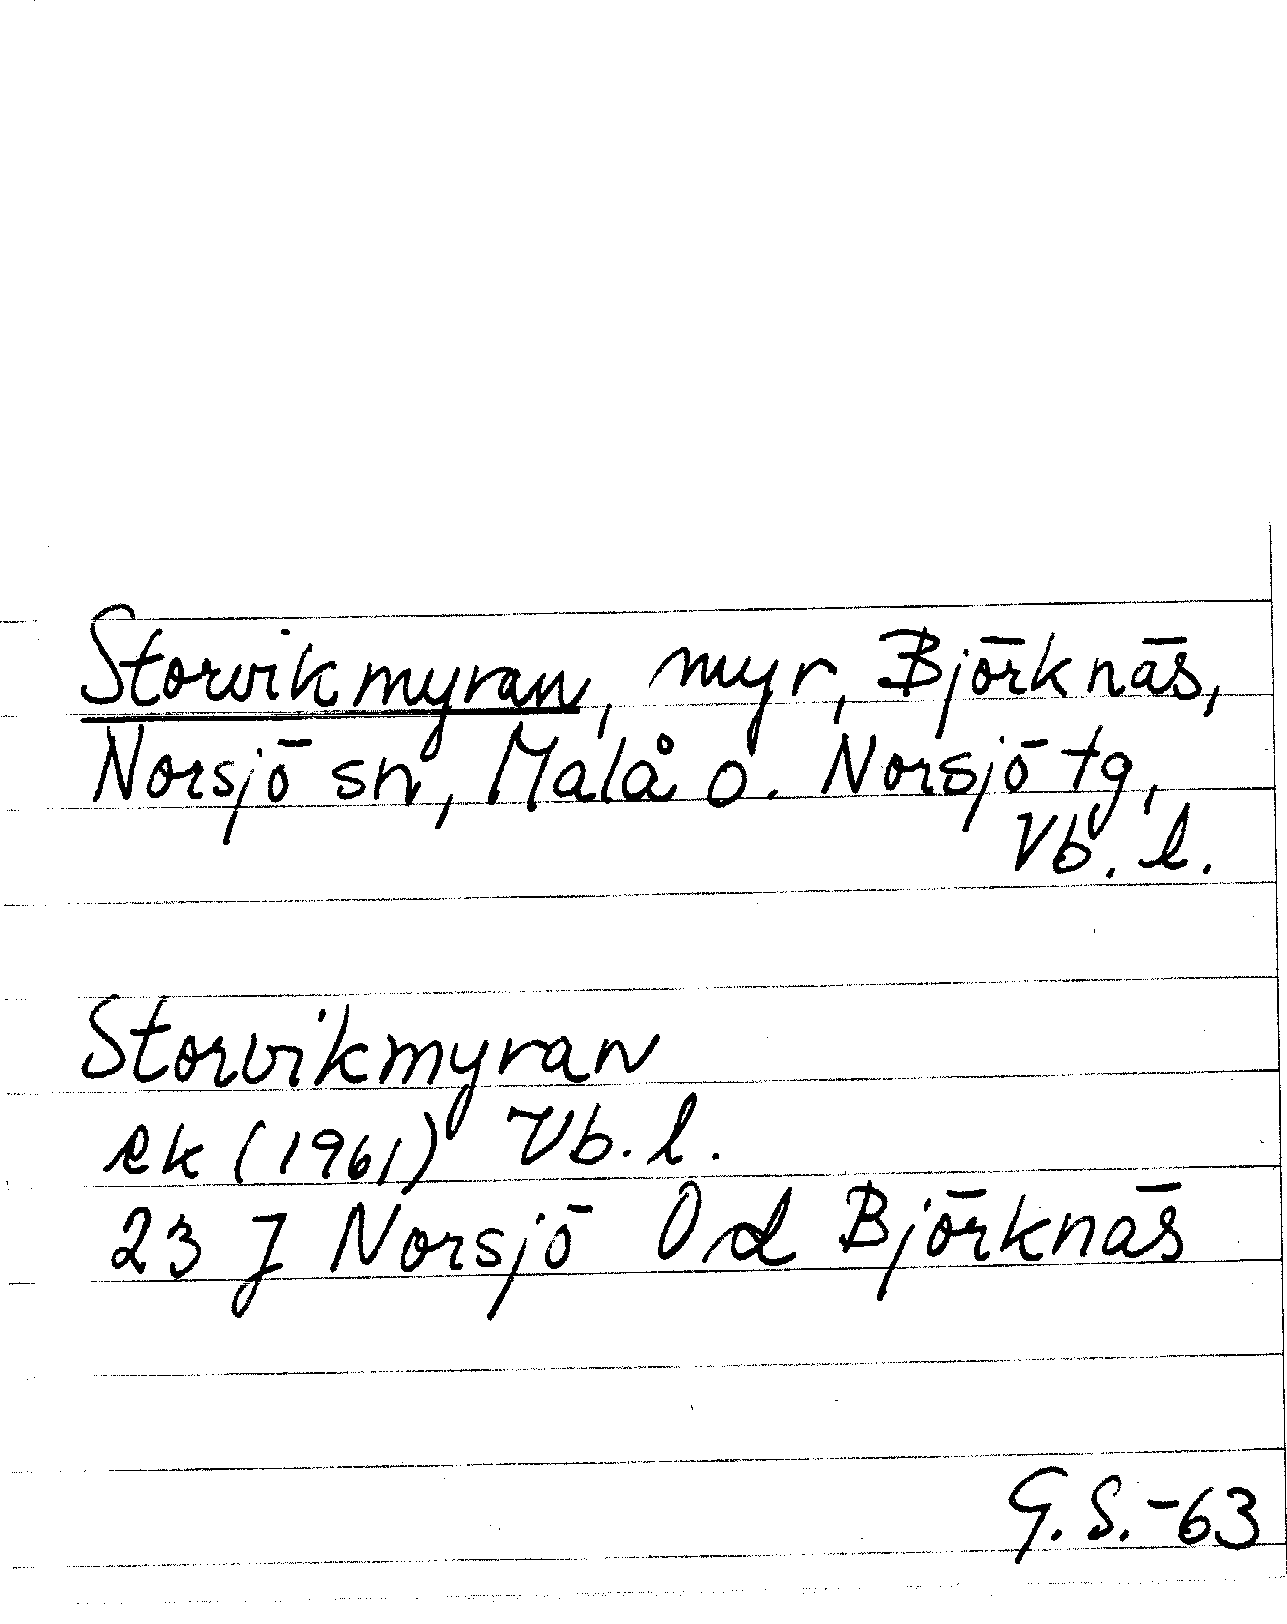 Storvikmyran, myr, Björknäs,
Norsjö sn, Malå o. Norsjö tg,
Vb. l.
Storvikmyran
ek (1961) Vb. l.
23 J Norsjö 0 d Björknäs
G. S. -63